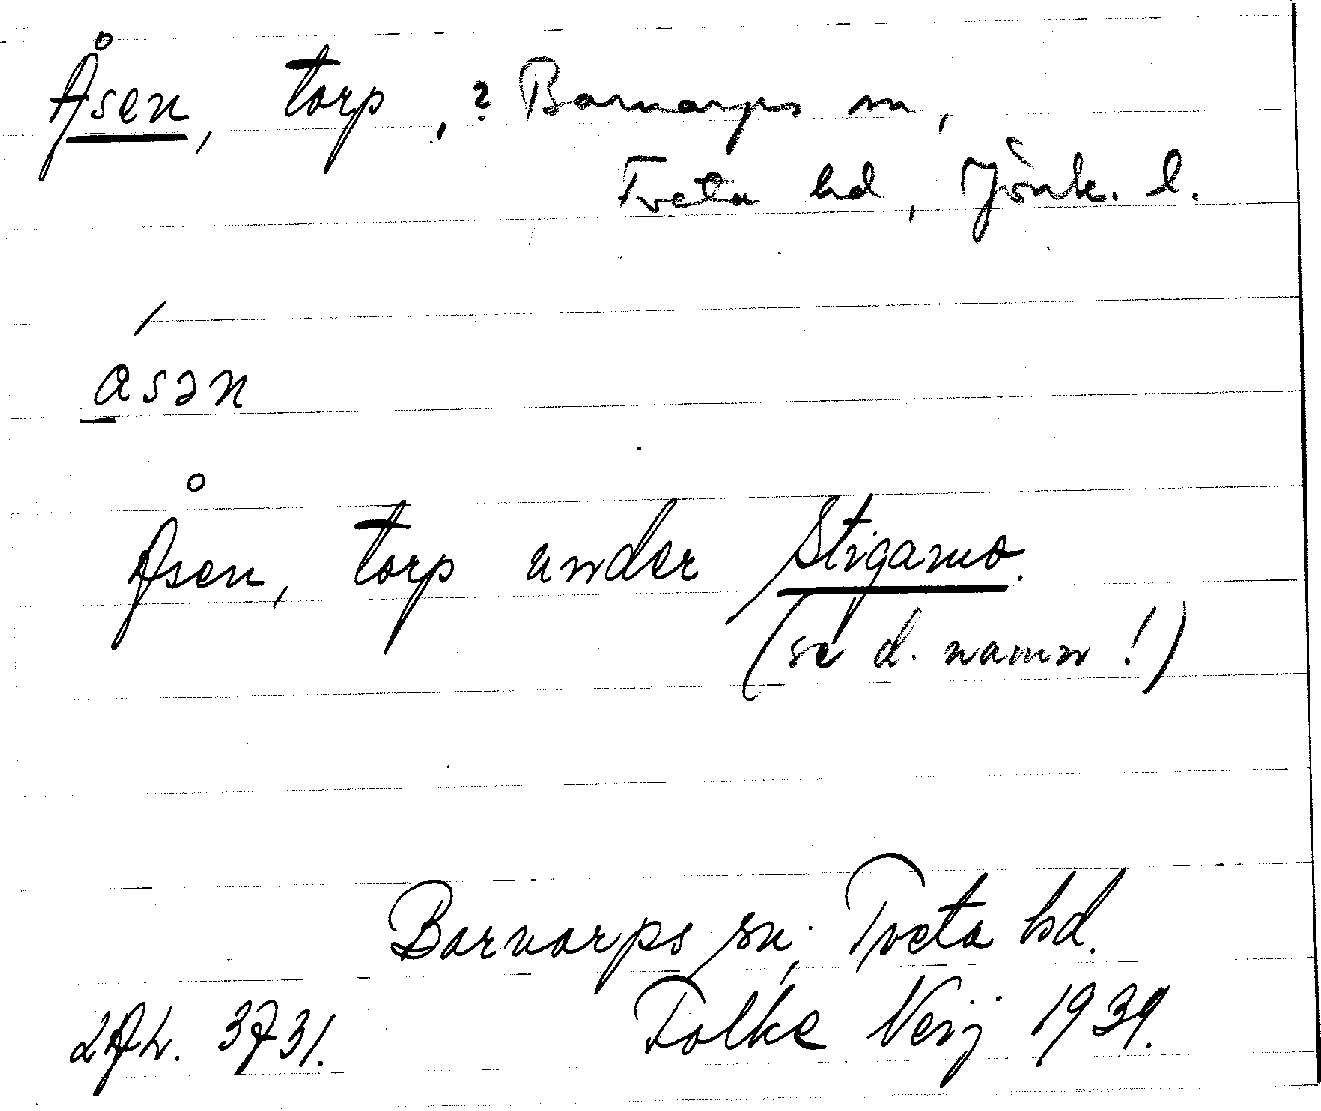 Åsen, torp, ? Barnarps sn,
Tveta hd, Jönk. l.
åsən
Åsen, torp under Stigamo.
(se d. namn!)
Barnarps sn, Tveta hd.
Folke 1939.